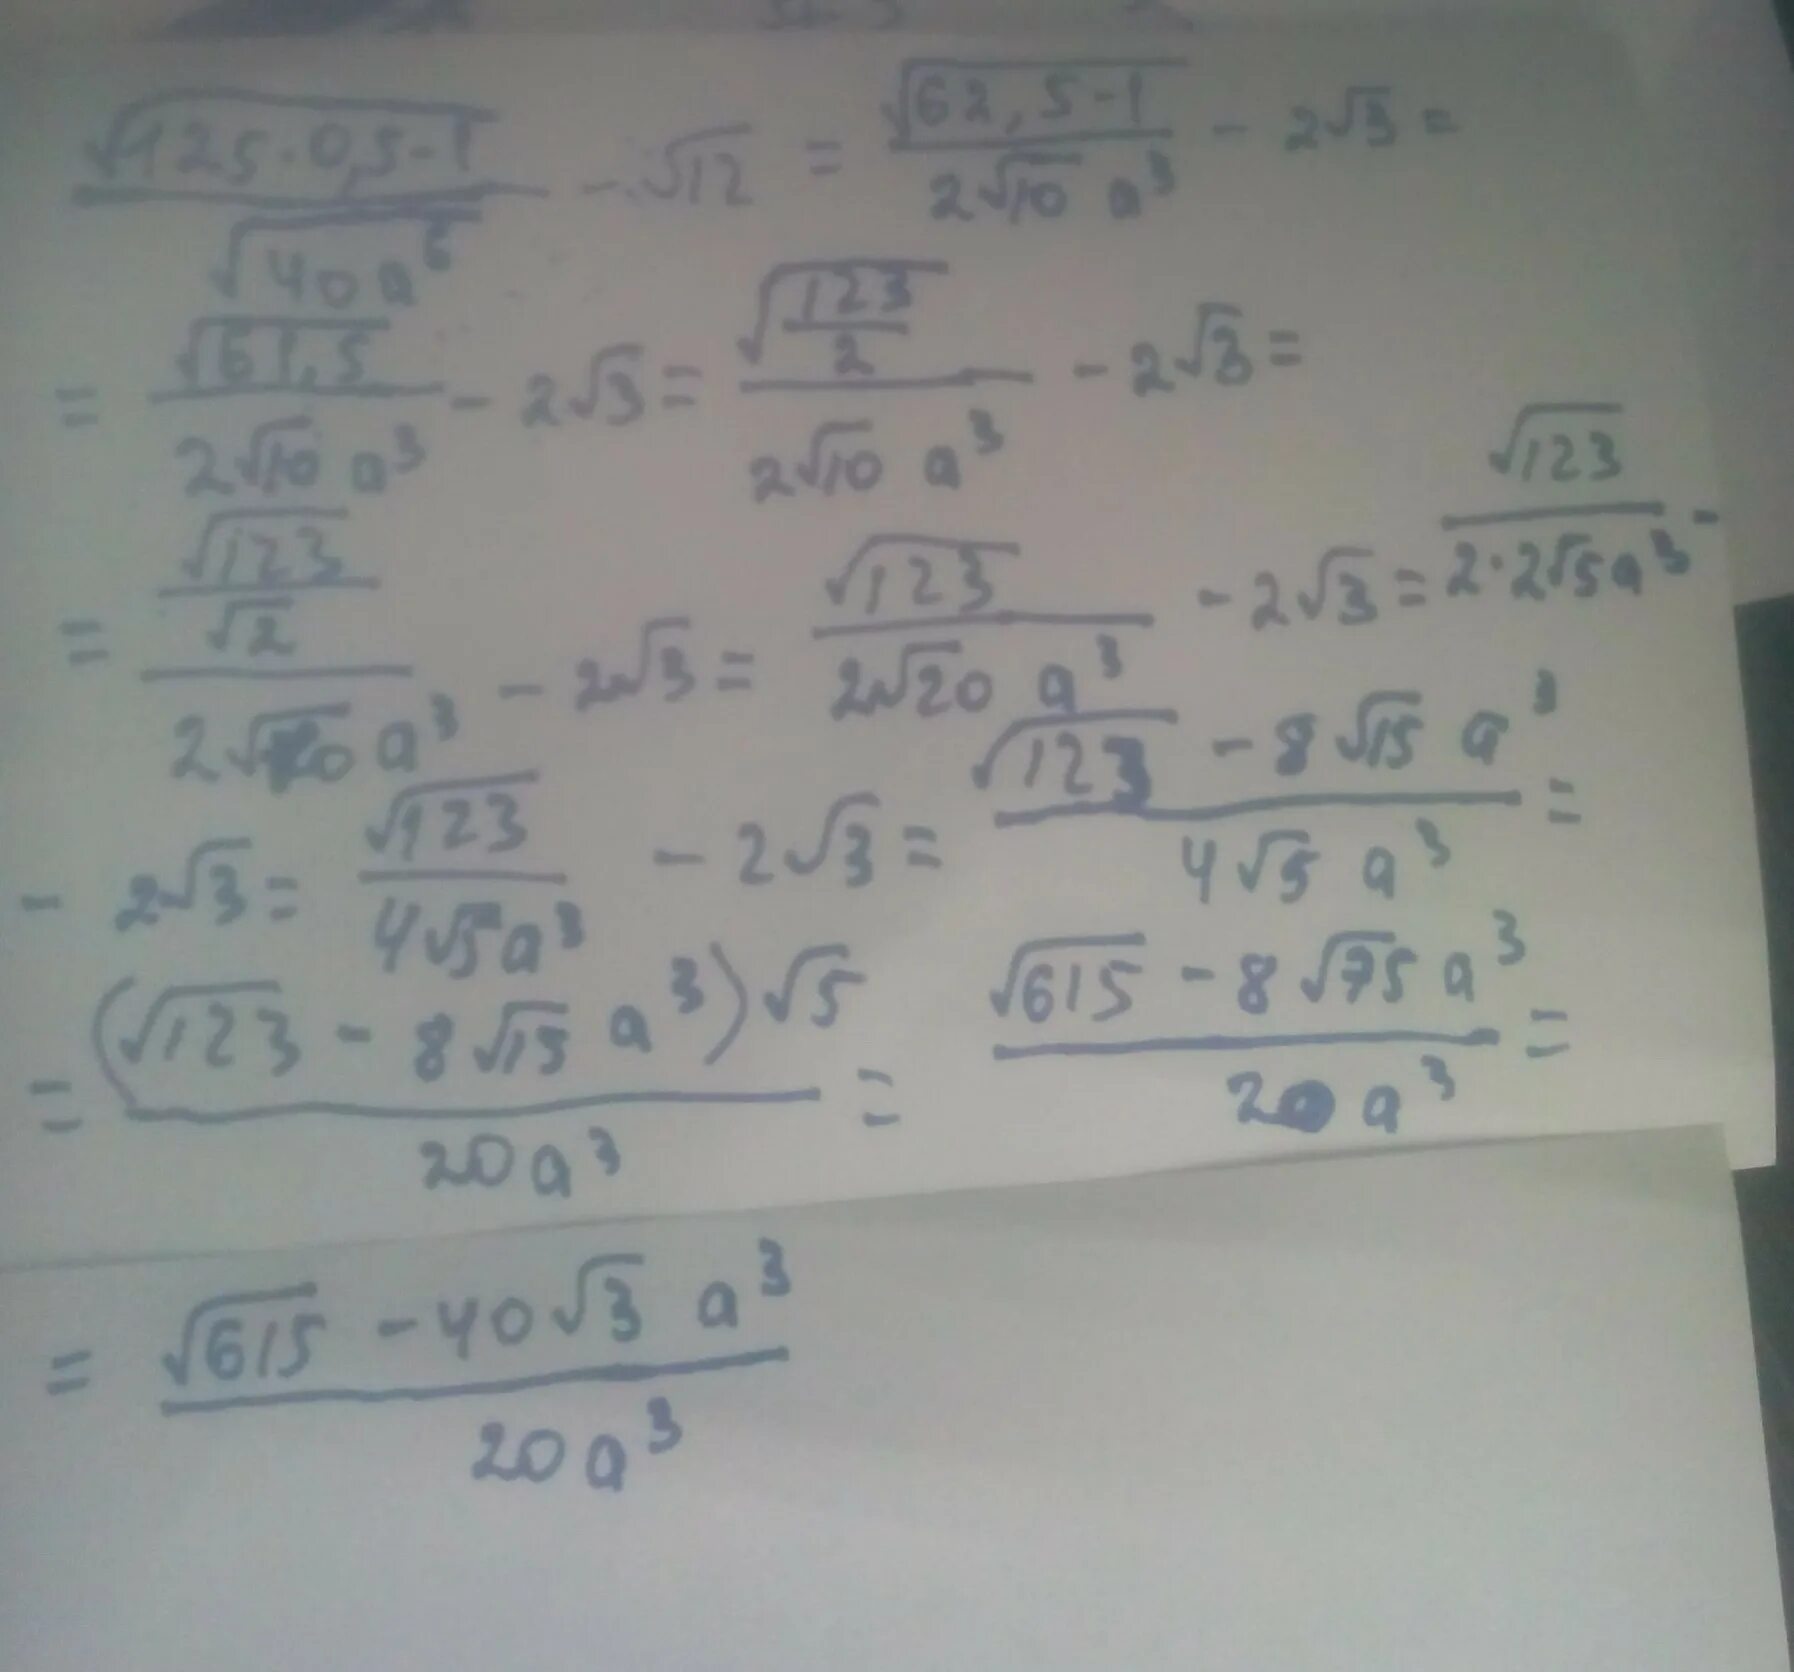 √(125·0,5-1) / √(40a⁶) - √12 = √(62,5-1) / (2√10 a³) - 2√3 =
= √(61,5) / (2√10 a³) - 2√3 = √(123/2) / (2√10 a³) - 2√3 =
= (√123/√2) / (2√10 a³) - 2√3 = √123 / (2√20 a³) - 2√3 = √123 / (2·2√5a³) -
- 2√3 = √123 / (4√5a³) - 2√3 = (√123 - 8√15 a³) / (4√5 a³) =
= (√123 - 8√15 a³)√5 / (20a³) = (√615 - 8√75a³) / (20a³) =
= (√615 - 40√3 a³) / (20a³)